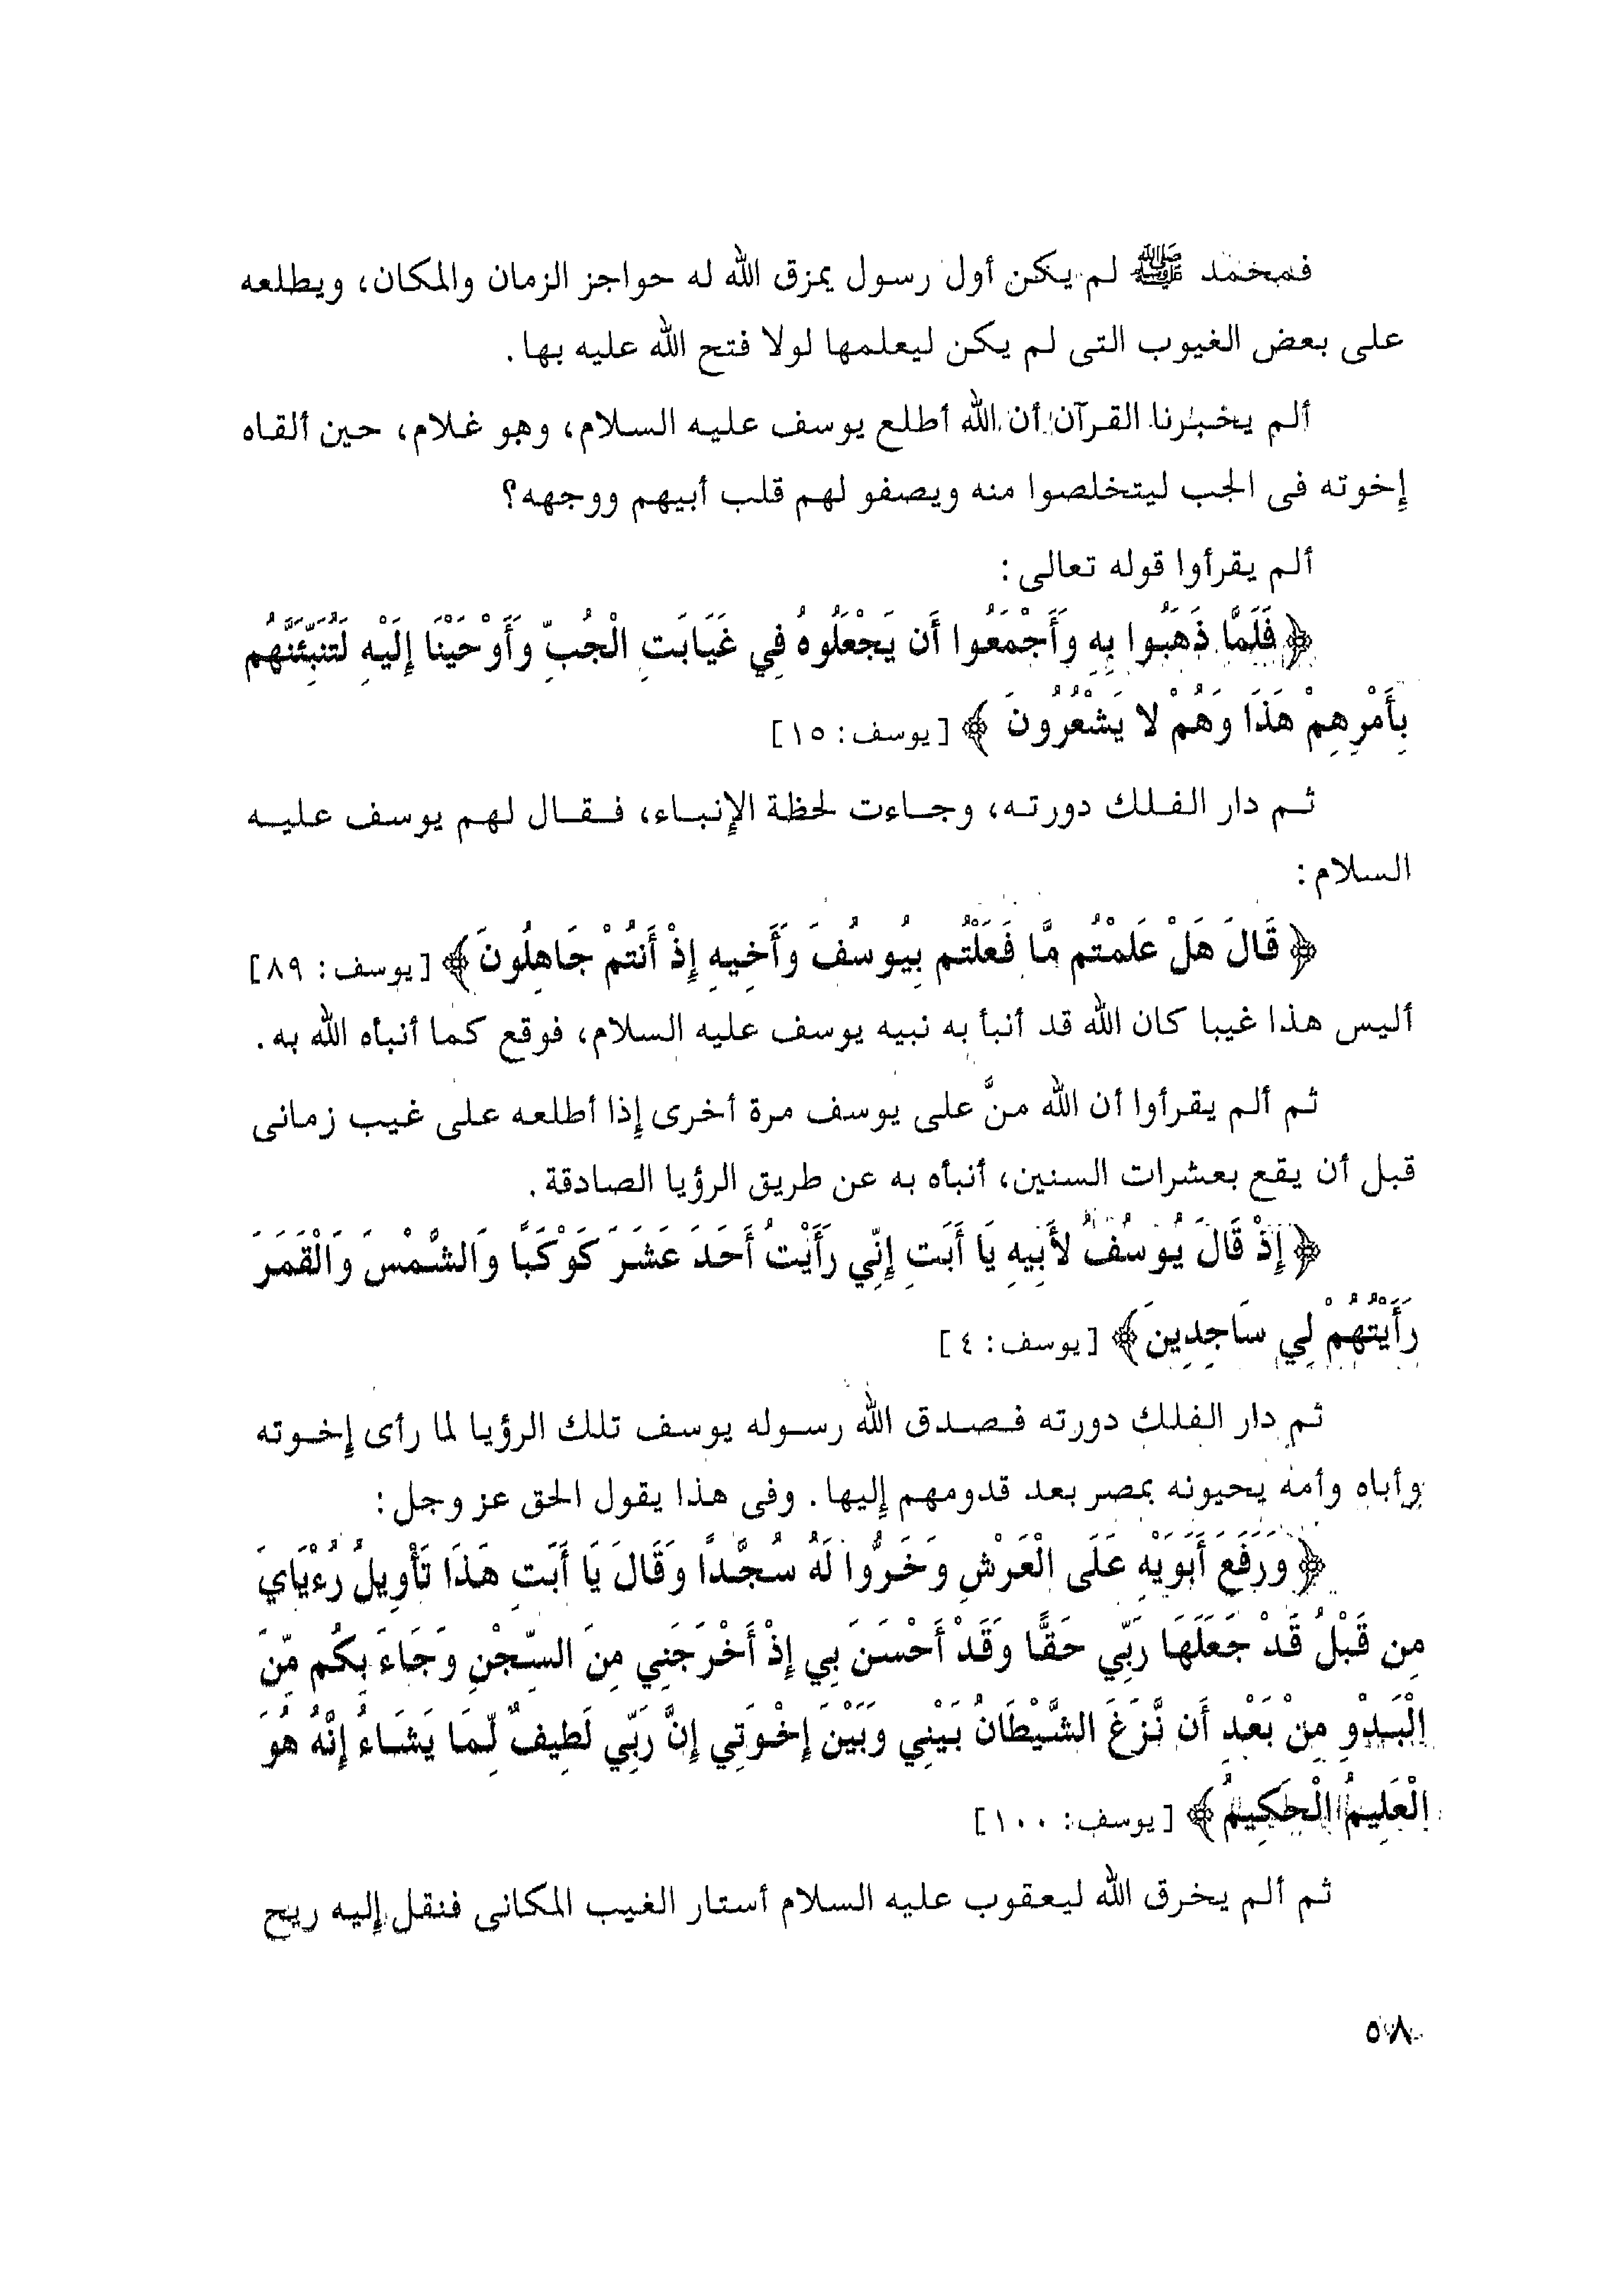 فمحمد ﷺ لم يكن أول رسول يمزق الله له حواجز الزمان والمكان، ويطلعه
على بعض الغيوب التى لم يكن ليعلمها لولا فتح الله عليه بها.
ألم يخبرنا القرآن أن الله أطلع يوسف عليه السلام، وهو غلام، حين ألقاه
إخوته فى الجب ليتخلصوا منه ويصفو لهم قلب أبيهم ووجهه؟
ألم يقرأوا قوله تعالى:
﴿فَلَمَّا ذَهَبُوا بِهِ وَأَجْمَعُوا أَن يَجْعَلُوهُ فِي غَيَابَتِ الْجُبِّ وَأَوْحَيْنَا إِلَيْهِ لَتُنَبِّئَنَّهُم
بِأَمْرِهِمْ هَذَا وَهُمْ لا يَشْعُرُونَ﴾ [يوسف: ١٥]
ثم دار الفلك دورته، وجاءت لحظة الإنباء، فقال لهم يوسف عليه
السلام:
﴿قَالَ هَلْ عَلِمْتُم مَّا فَعَلْتُم بِيُوسُفَ وَأَخِيهِ إِذْ أَنتُمْ جَاهِلُونَ﴾ [يوسف: ٨٩]
أليس هذا غيبا كان الله قد أنبأ به نبيه يوسف عليه السلام، فوقع كما أنبأه الله به.
ثم ألم يقرأوا أن الله منَّ على يوسف مرة أخرى إذا أطلعه على غيب زمانى
قبل أن يقع بعشرات السنين، أنبأه به عن طريق الرؤيا الصادقة.
﴿إِذْ قَالَ يُوسُفُ لأَبِيهِ يَا أَبَتِ إِنِّي رَأَيْتُ أَحَدَ عَشَرَ كَوْكَبًا وَالشَّمْسَ وَالْقَمَرَ
رَأَيْتُهُمْ لِي سَاجِدِينَ﴾ [يوسف: ٤]
ثم دار الفلك دورته فصدق الله رسوله يوسف تلك الرؤيا لما رأى إخوته
وأباه وأمه يحيونه بمصر بعد قدومهم إليها. وفى هذا يقول الحق عز وجل:
﴿وَرَفَعَ أَبَوَيْهِ عَلَى الْعَرْشِ وَخَرُّوا لَهُ سُجَّدًا وَقَالَ يَا أَبَتِ هَذَا تَأْوِيلُ رُءْيَايَ
مِن قَبْلُ قَدْ جَعَلَهَا رَبِّي حَقًّا وَقَدْ أَحْسَنَ بِي إِذْ أَخْرَجَنِي مِنَ السِّجْنِ وَجَاءَ بِكُم مِّنَ
الْبَدْوِ مِنْ بَعْدِ أَن نَّزَغَ الشَّيْطَانُ بَيْنِي وَبَيْنَ إِخْوَتِي إِنَّ رَبِّي لَطِيفٌ لِّمَا يَشَاءُ إِنَّهُ هُوَ
الْعَلِيمُ الْحَكِيمُ﴾ [يوسف: ١٠٠]
ثم ألم يخرق الله ليعقوب عليه السلام أستار الغيب المكانى فنقل إليه ريح